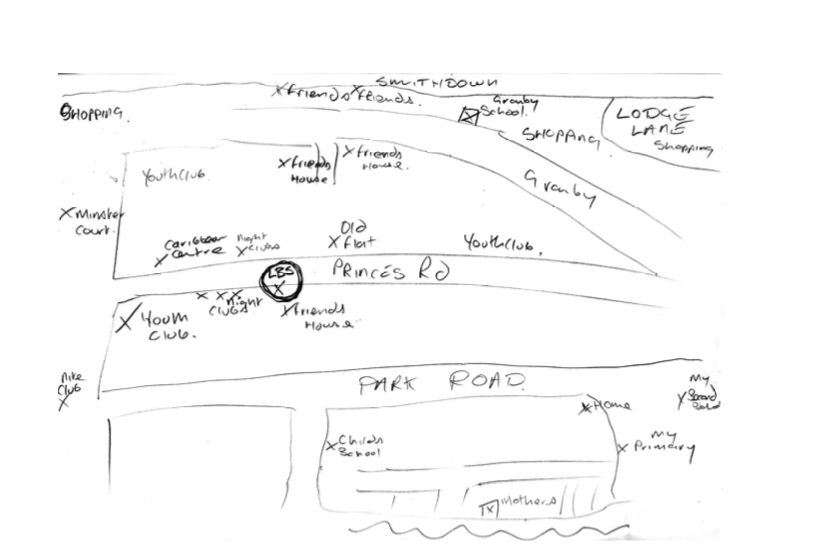 SMITHDOWN
X friends X friends.
SHOPPING.
Granby
School.
SHOPPING
LODGE
LANE
Shopping
Youth Club
X friends
House
X friends
House.
Granby
X Minster
Court.
Caribbean
X Centre
Night
X Clubs
Old
X flat
Youth Club.
LBS
X
PRINCES RD
X X X
Night
Clubs
X friends
House
X Youth
Club.
Nite
Club
X
PARK ROAD
My
X Second
School
X Home
X Childs
School
My
X Primary
X Mothers